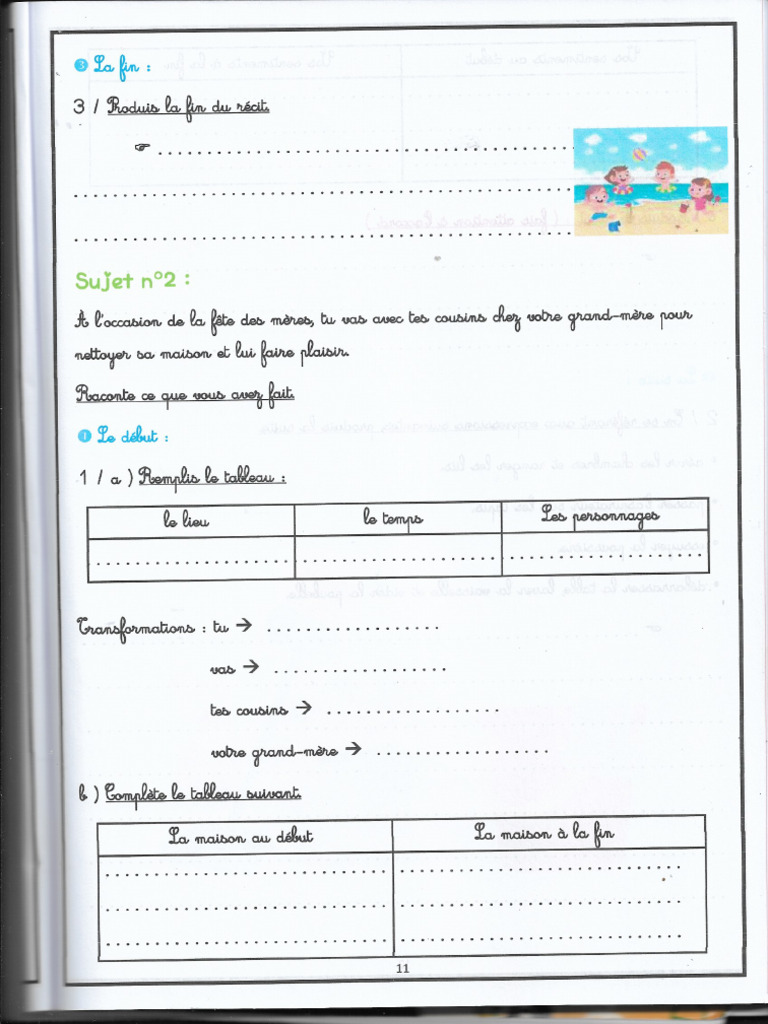 ❸ La fin :
3 / Produis la fin du récit.
☞ ..........................................
..................................................
..................................................
Sujet n°2 :
A l'occasion de la fête des mères, tu vas avec tes cousins chez votre grand-mère pour
nettoyer sa maison et lui faire plaisir.
Raconte ce que vous avez fait.
❶ Le début :
1 / a ) Remplis le tableau :
le lieu le temps Les personnages
Transformations : tu → ..................
vas → ..................
tes cousins → ..................
votre grand-mère → ..................
b ) Complète le tableau suivant.
La maison au début La maison à la fin
11